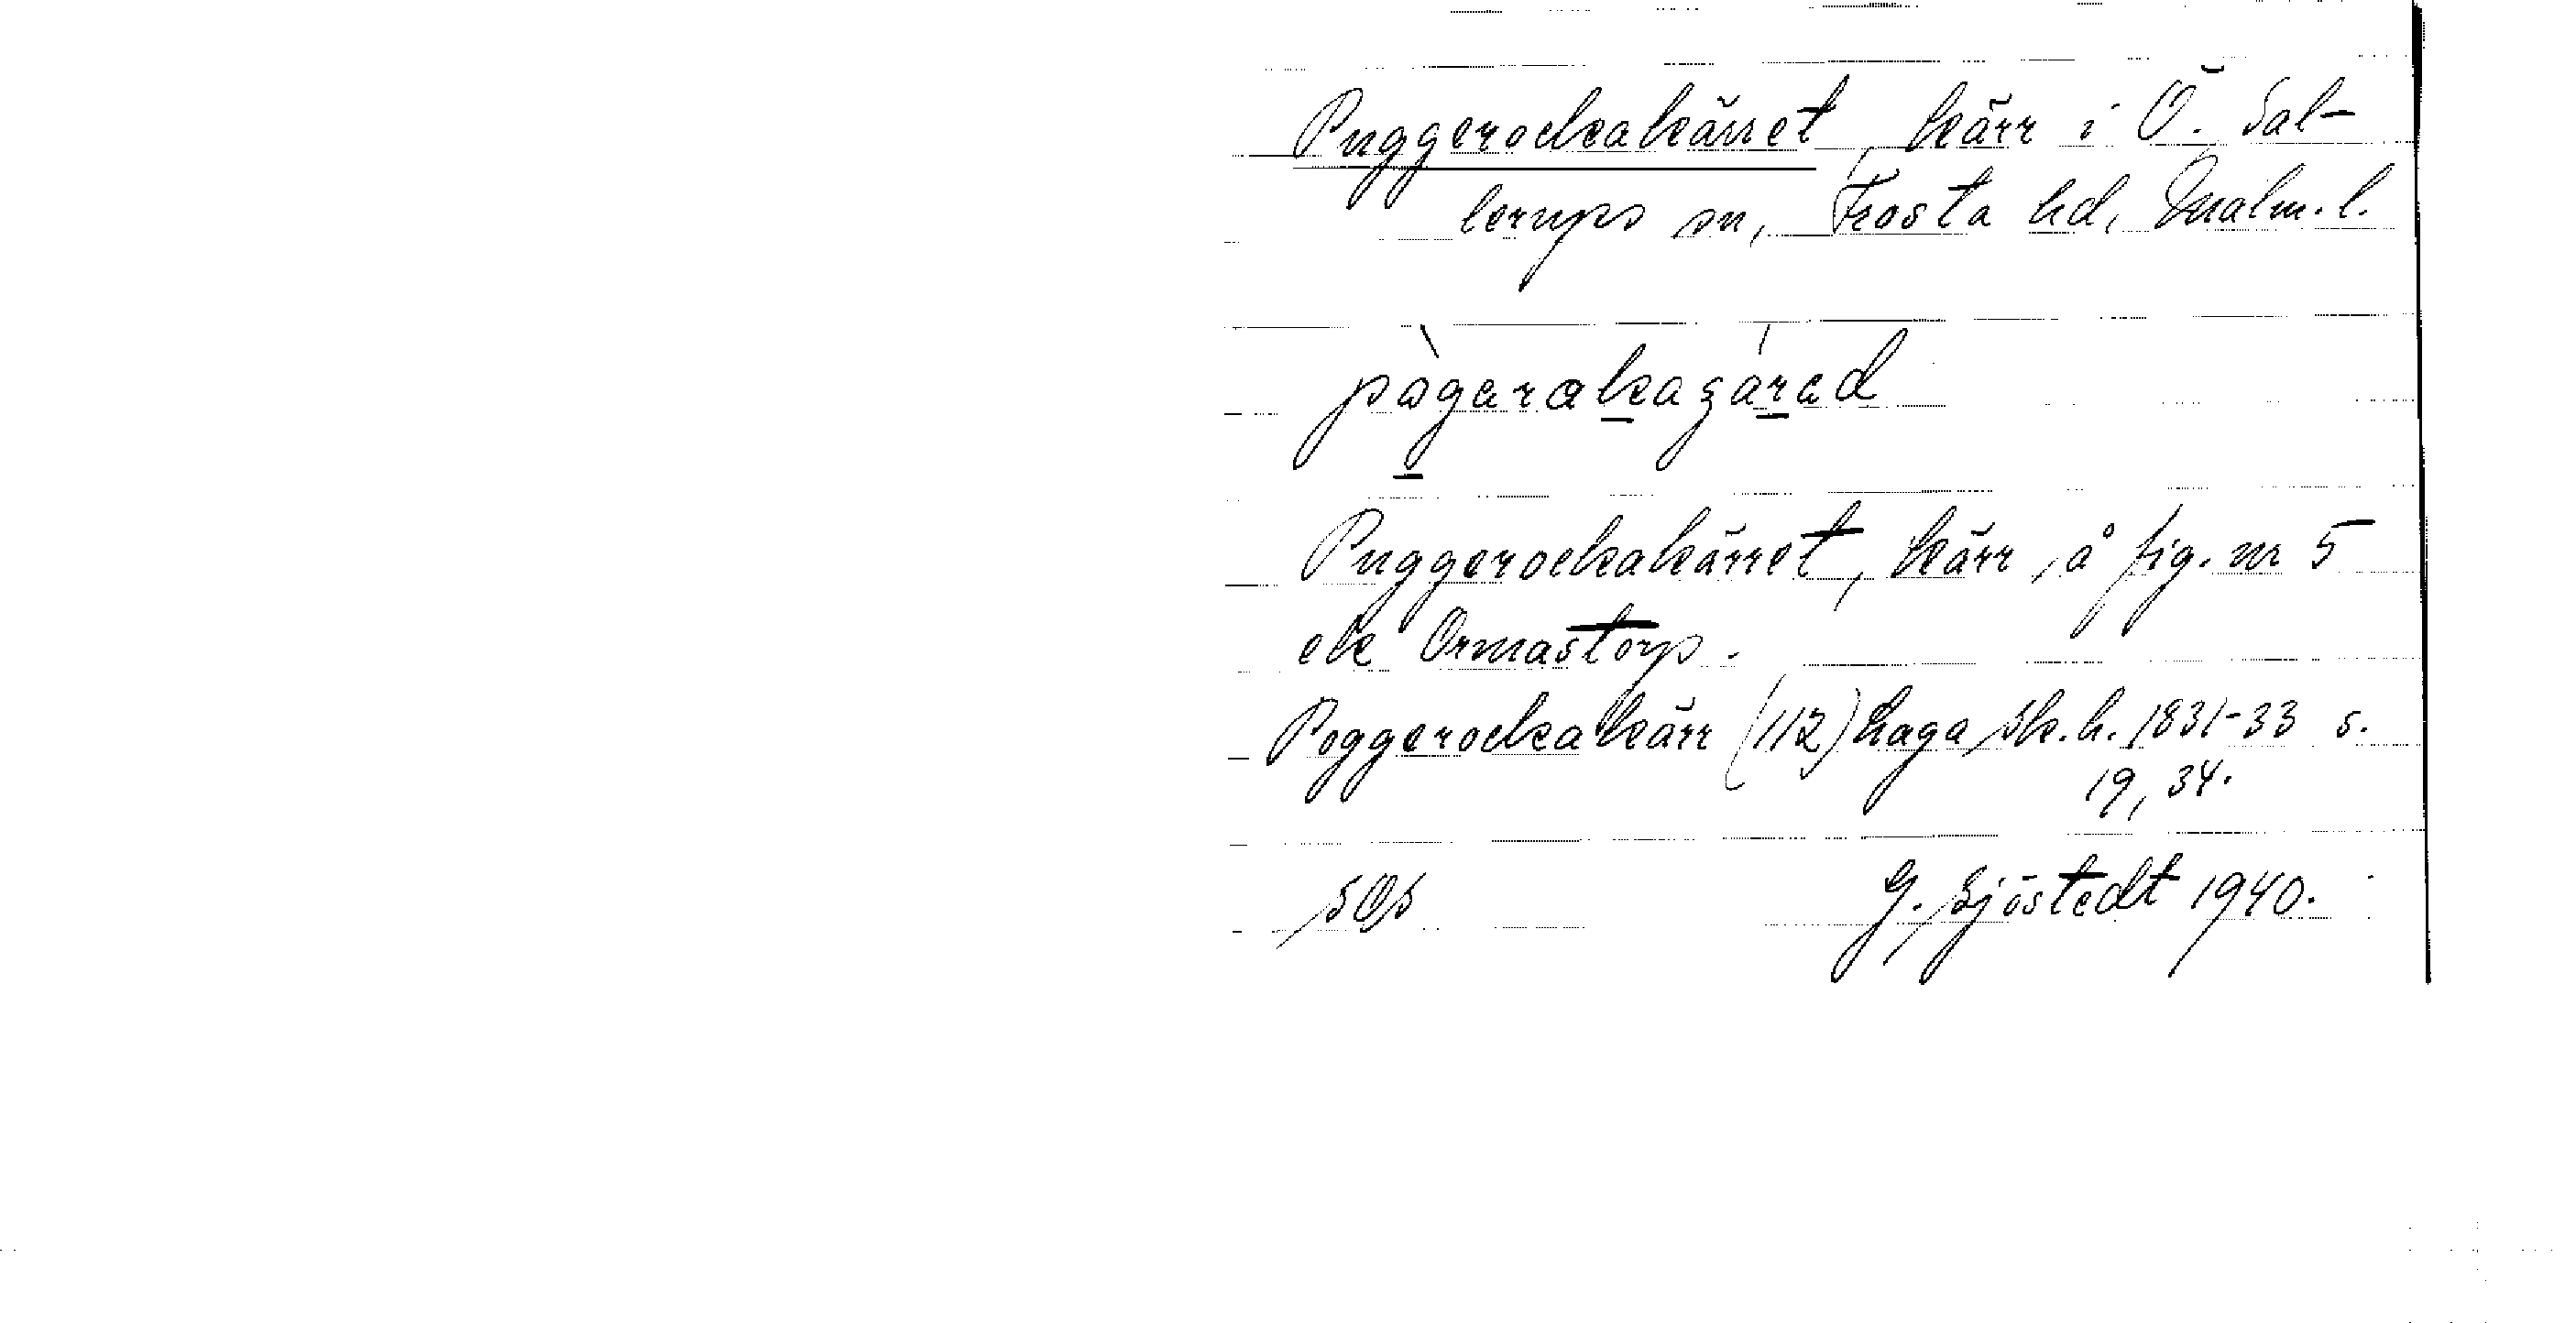 Puggerockakärret, kärr i Ö. Sal-
lerups sn, Frosta hd, Malm. l.
Puggerockakärret, kärr, å fig. nr 5
ek Ormastorp.
Poggerocka kärr (112) haga, sk.h. 1831-33 s.
19, 34.
sOs G. Sjöstedt 1940.